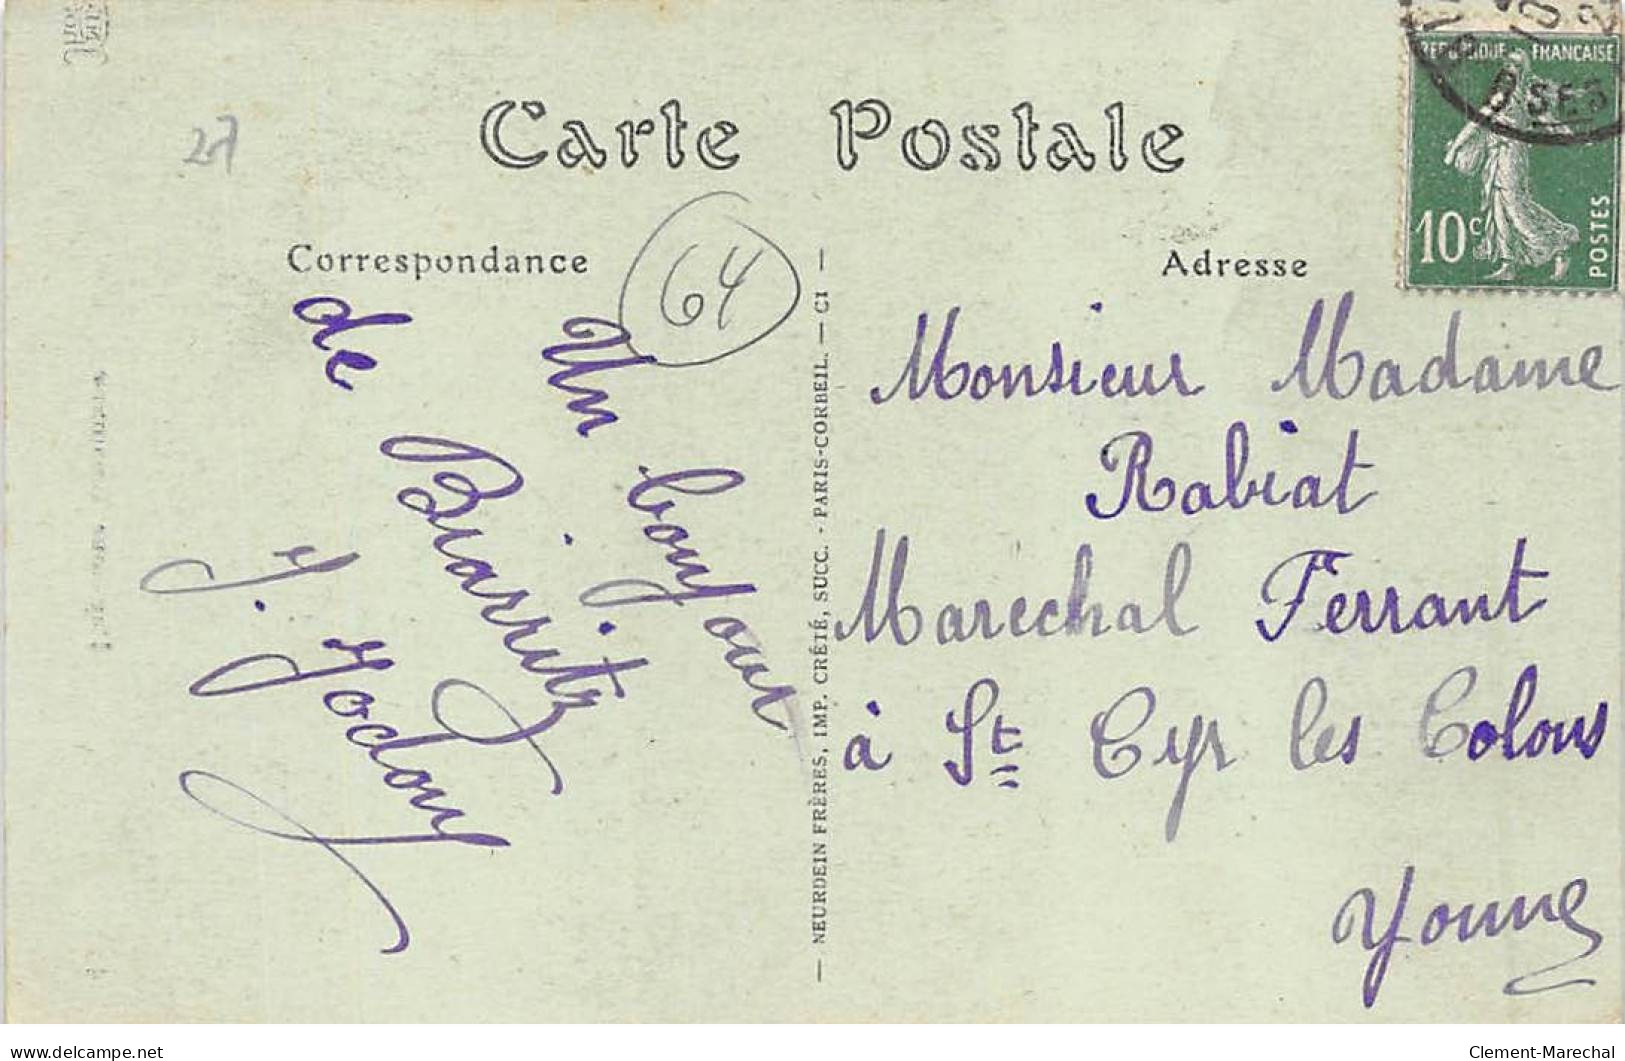 27
Carte Postale
64
Correspondance
Adresse
REPUBLIQUE FRANCAISE
10c
POSTES
Un bonjour
de Biarritz
Monsieur Madame
Rabiat
Marechal Ferrant
à St Cyr les Colons
Yonne
— NEURDEIN FRÈRES, IMP. CRÉTÉ, SUCC. - PARIS-CORBEIL. — CI —
delcampe.net
Clement-Marechal